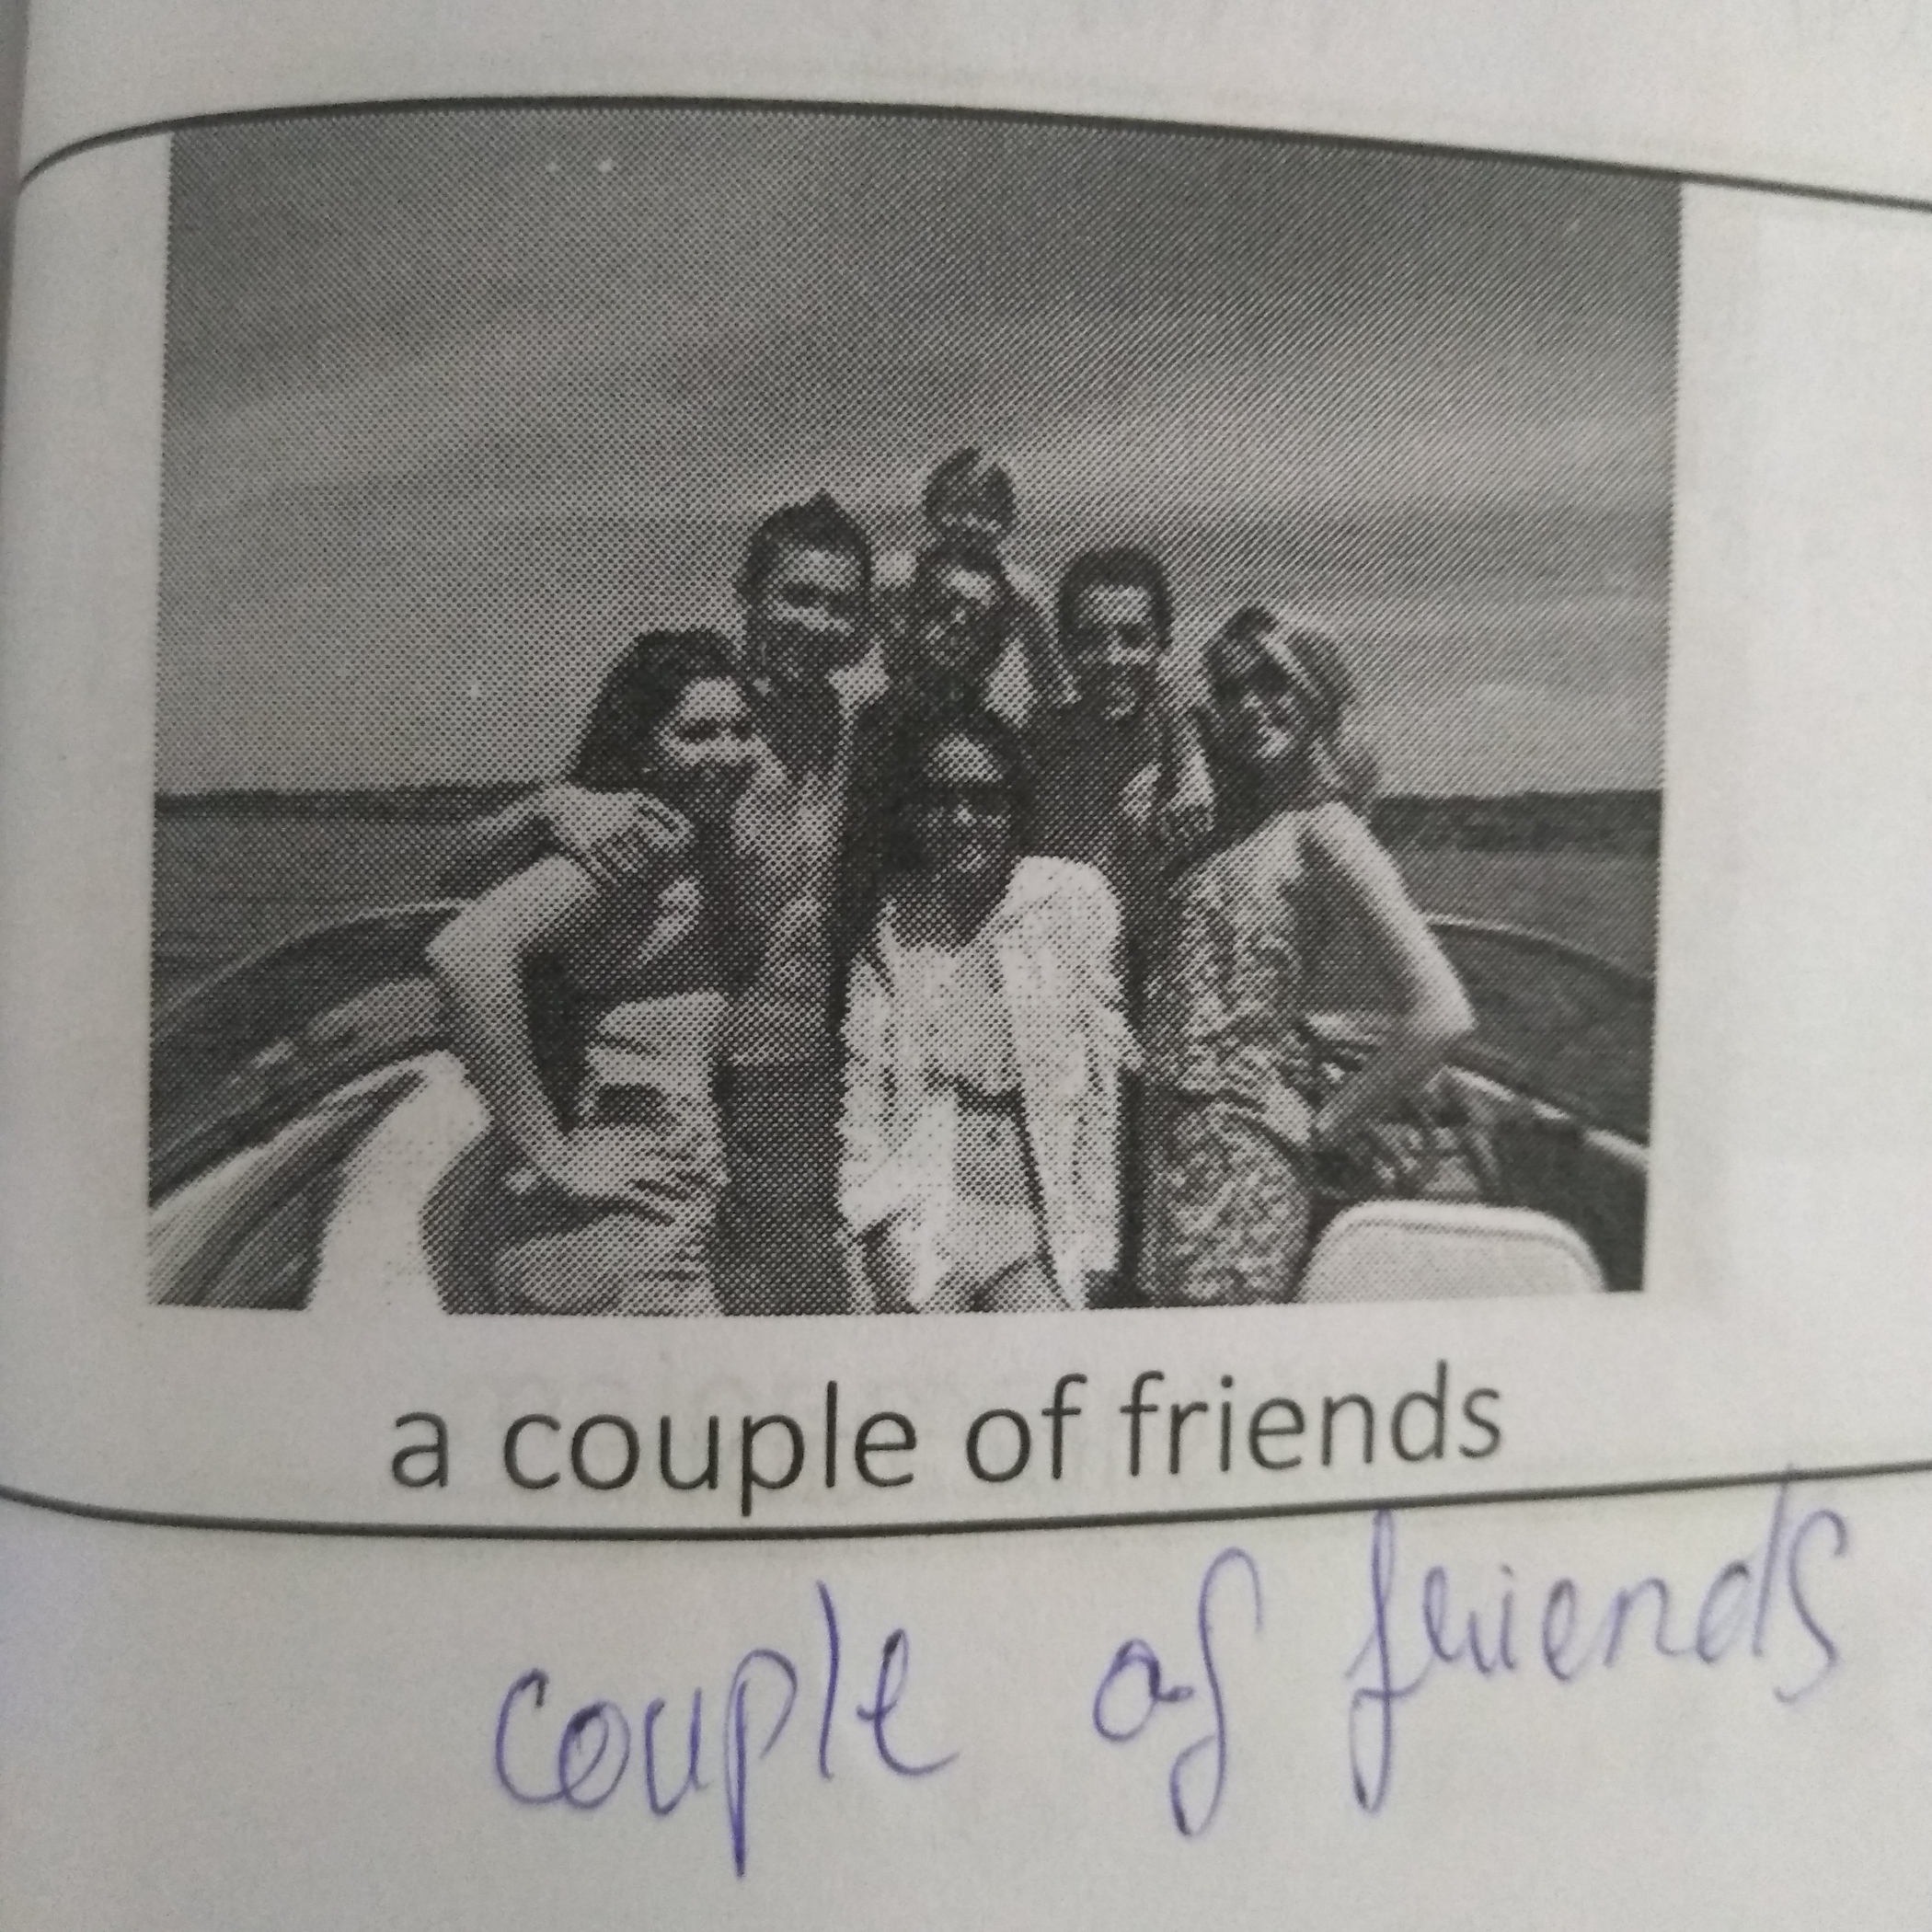 a couple of friends
couple of friends